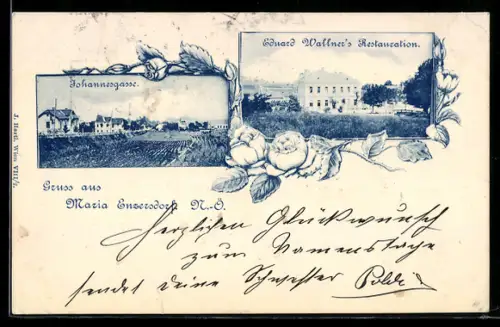 Eduard Wallner's Restauration.
Johannesgasse.
J. Hartl, Wien, VIII/1.
Gruss aus
Maria Enzersdorf N.-Ö.
Herzlichen Glückwunsch
zum Namenstage
sendet deine Schwester Poldi